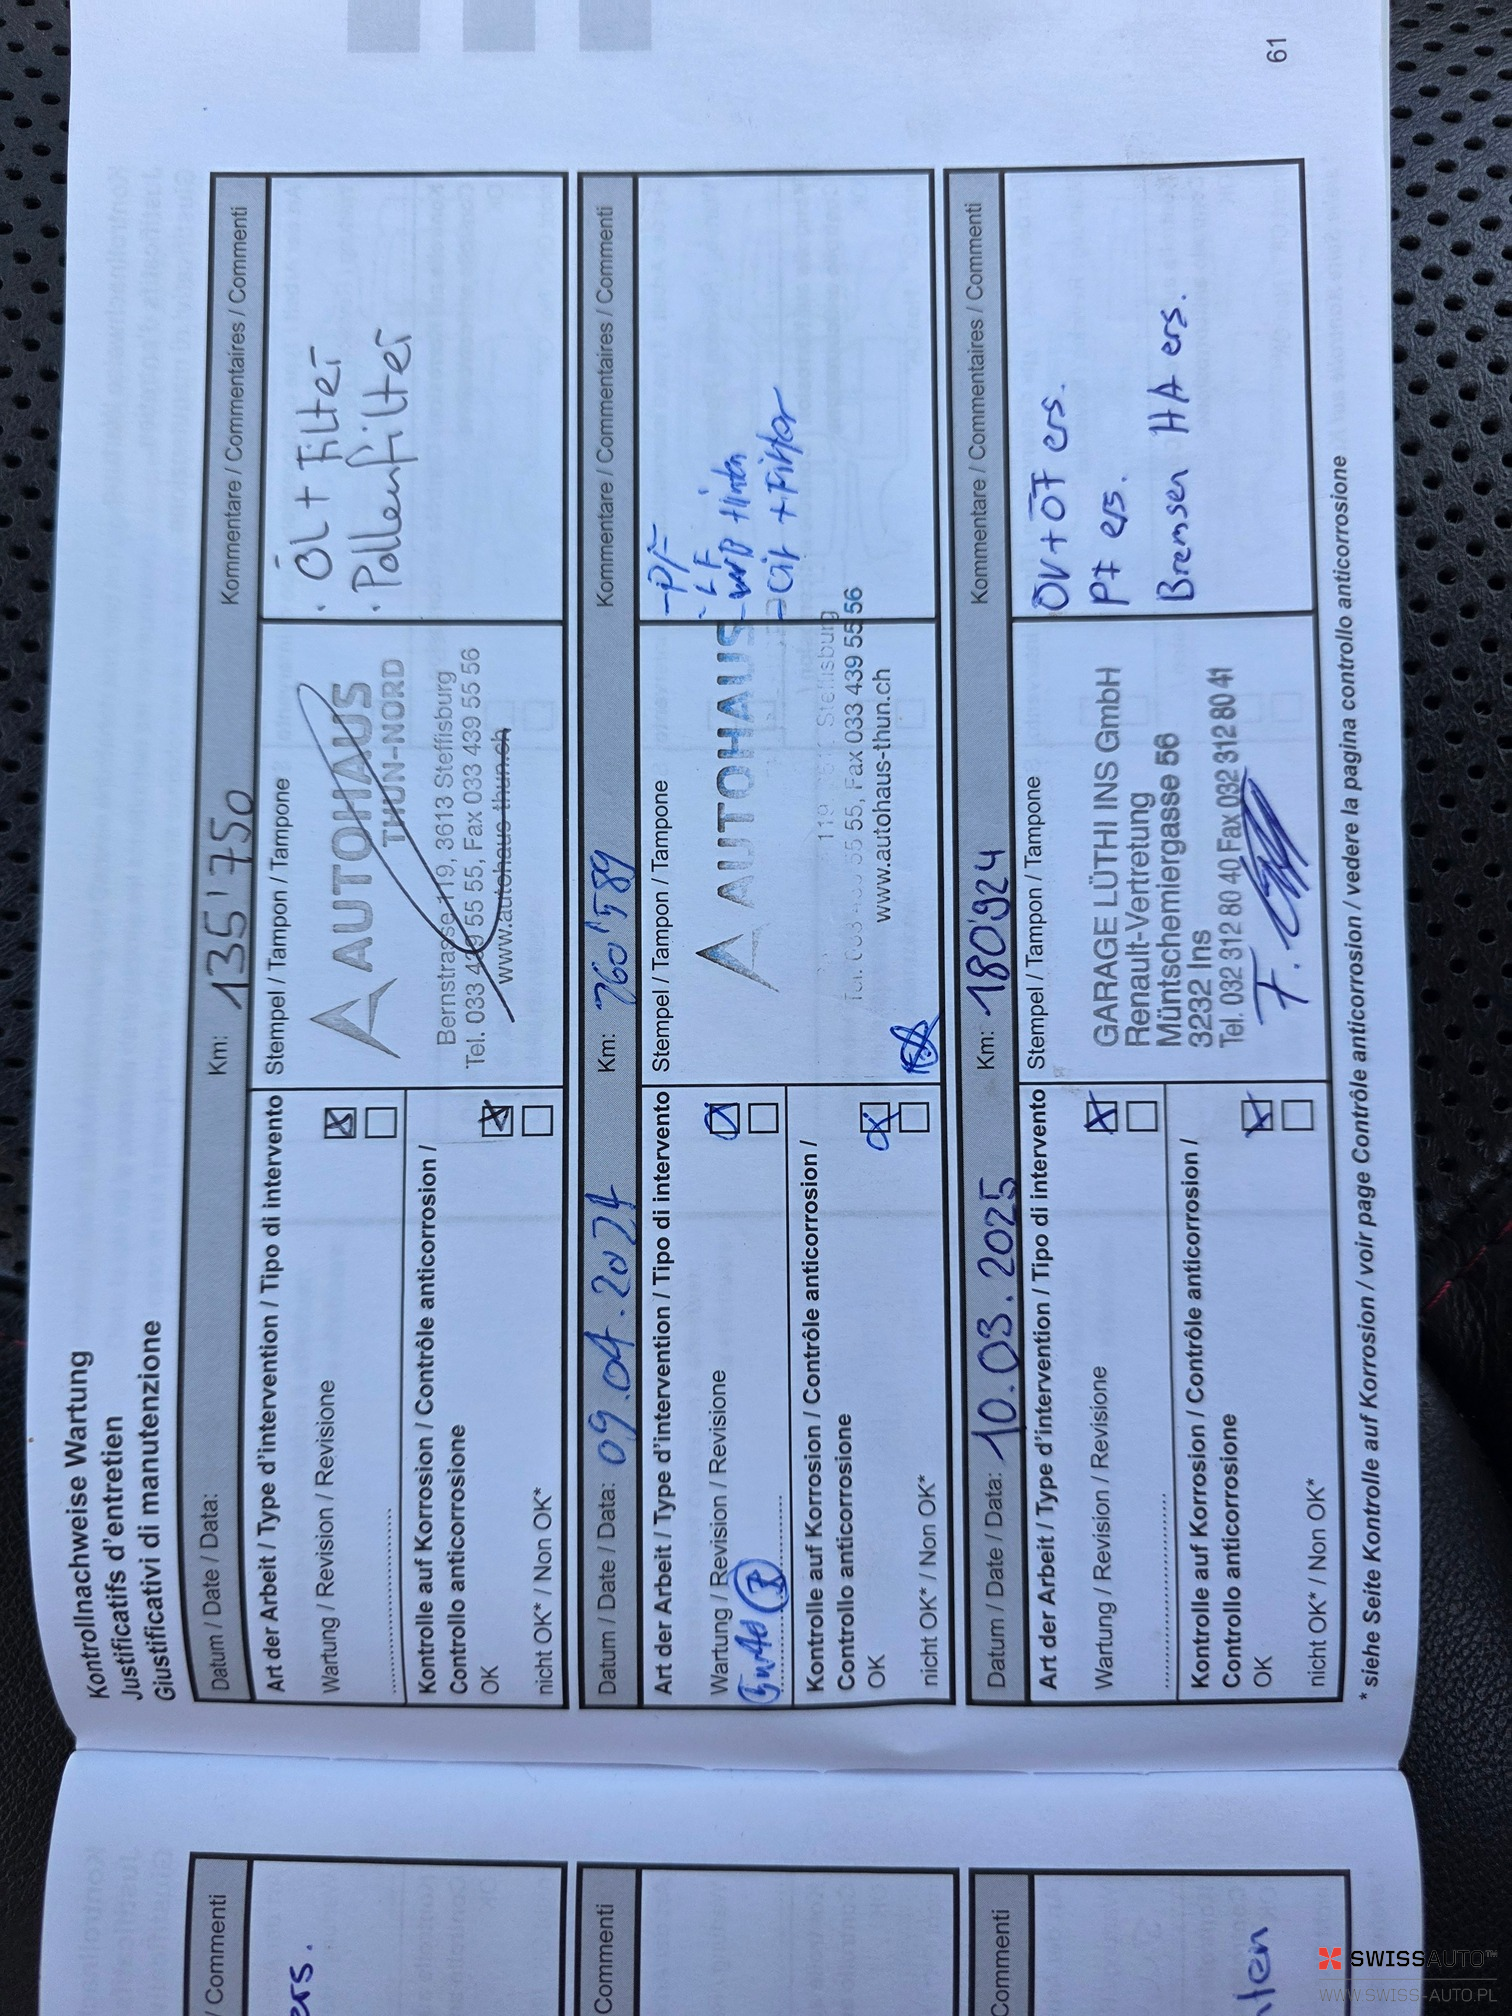 Kontrollnachweise Wartung
Justificatifs d'entretien
Giustificativi di manutenzione
Datum / Date / Data: Km: 135'750 Kommentare / Commentaires / Commenti
Art der Arbeit / Type d'intervention / Tipo di intervento
Wartung / Revision / Revisione
Kontrolle auf Korrosion / Contrôle anticorrosion /
Controllo anticorrosione
OK
nicht OK* / Non OK*
Stempel / Tampon / Tampone
AUTOHAUS
THUN-NORD
Bernstrasse 119, 3613 Steffisburg
Tel. 033 439 55 55, Fax 033 439 55 56
www.autohaus-thun.ch
. ÖL + Filter
. Pollenfilter
Datum / Date / Data: 09.04.2024 Km: 160'589 Kommentare / Commentaires / Commenti
Art der Arbeit / Type d'intervention / Tipo di intervento
Wartung / Revision / Revisione
Kontrolle auf Korrosion / Contrôle anticorrosion /
Controllo anticorrosione
OK
nicht OK* / Non OK*
Stempel / Tampon / Tampone
AUTOHAUS
119 Steffisburg
Tel. 033 55 55, Fax 033 439 55 56
www.autohaus-thun.ch
- PF
- LF
Hinten
+ Filter
Datum / Date / Data: 10.03.2025 Km: 180'924 Kommentare / Commentaires / Commenti
Art der Arbeit / Type d'intervention / Tipo di intervento
Wartung / Revision / Revisione
Kontrolle auf Korrosion / Contrôle anticorrosion /
Controllo anticorrosione
OK
nicht OK* / Non OK*
Stempel / Tampon / Tampone
GARAGE LÜTHI INS GmbH
Renault-Vertretung
Müntschemiergasse 56
3232 Ins
Tel. 032 312 80 40 Fax 032 312 80 41
ÖV + ÖF ers.
PF ers.
Bremsen HA ers.
* siehe Seite Kontrolle auf Korrosion / voir page Contrôle anticorrosion / vedere la pagina controllo anticorrosione
61
/ Commenti
ers.
Commenti
Commenti
SWISSAUTO™
WWW.SWISS-AUTO.PL